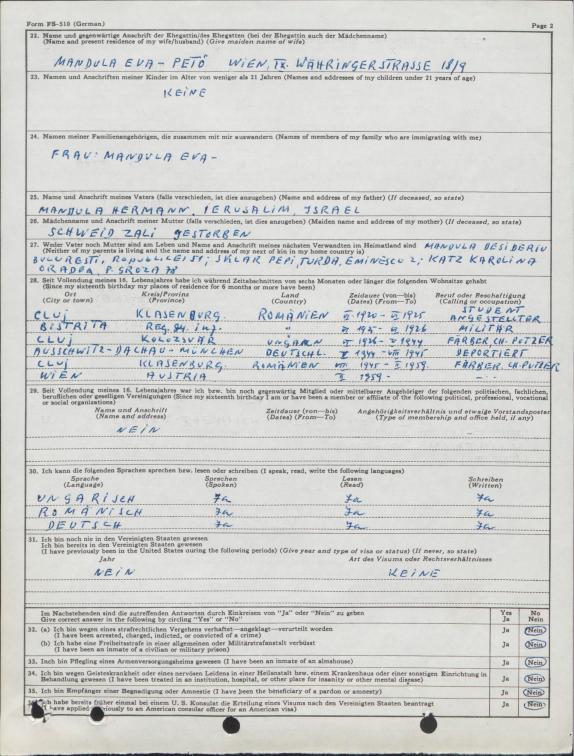 Form FS-510 (German)
Page 2
22. Name und gegenwärtige Anschrift der Ehegattin/des Ehegatten (bei der Ehegattin auch der Mädchenname)
(Name and present residence of my wife/husband) (Give maiden name of wife)
MANDULA EVA - PETÖ WIEN, IX. WÄHRINGERSTRASSE 18/9
23. Namen und Anschriften meiner Kinder im Alter von weniger als 21 Jahren (Names and addresses of my children under 21 years of age)
KEINE
24. Namen meiner Familienangehörigen, die zusammen mit mir auswandern (Names of members of my family who are immigrating with me)
FRAU: MANDULA EVA -
25. Name und Anschrift meines Vaters (falls verschieden, ist dies anzugeben) (Name and address of my father) (If deceased, so state)
MANDULA HERMANN, IERUSALIM, ISRAEL
26. Mädchenname und Anschrift meiner Mutter (falls verschieden, ist dies anzugeben) (Maiden name and address of my mother) (If deceased, so state)
SCHWEID ZALI GESTORBEN
27. Weder Vater noch Mutter sind am Leben und Name und Anschrift meines nächsten Verwandten im Heimatland sind MANDULA DESIDERIU
(Neither of my parents is living and the name and address of my next of kin in my home country is)
BUCURESTI, REPUBLICEI ; SKLAR PEPI, TURDA, EMINESCU 2; KATZ KAROLINA
ORADEA, P. GROZA
28. Seit Vollendung meines 16. Lebensjahres habe ich während Zeitabschnitten von sechs Monaten oder länger die folgenden Wohnsitze gehabt
(Since my sixteenth birthday my places of residence for 6 months or more have been)
Ort Kreis/Provinz Land Zeidauer (von—bis) Beruf oder Beschäftigung
(City or town) (Province) (Country) (Dates) (From—To) (Calling or occupation)
STUDENT
CLUJ KLASENBURG. ROMÄNIEN 1920 - 1925 ANGESTELLTER
BISTRITA REG. 84. inf. " 1925 - 1926 MILITÄR
CLUJ KOLOZSVÁR UNGARN 1926 - 1944 FÄRBER, CH. PUTZER
AUSSCHWITZ-DACHAU-MÜNCHEN DEUTSCHL. 1944 - 1945 DEPORTIERT
CLUJ KLASENBURG. ROMÄNIEN 1945 - 1959. FÄRBER. CH. PUTZER
WIEN AUSTRIA 1959 -
29. Seit Vollendung meines 16. Lebensjahres war ich bzw. bin noch gegenwärtig Mitglied oder mittelbarer Angehöriger der folgenden politischen, fachlichen,
beruflichen oder geselligen Vereinigungen (Since my sixteenth birthday I am or have been a member or affiliate of the following political, professional, vocational
or social organizations)
Name und Anschrift Zeitdauer (von—bis) Angehörigkeitsverhältnis und etwaige Vorstandsposten
(Name and address) (Dates) (From—To) (Type of membership and office held, if any)
NEIN
30. Ich kann die folgenden Sprachen sprechen bzw. lesen oder schreiben (I speak, read, write the following languages)
Sprache Sprechen Lesen Schreiben
(Language) (Spoken) (Read) (Written)
UNGARISCH Ja Ja Ja
ROMÄNISCH Ja Ja Ja
DEUTSCH Ja Ja Ja
31. Ich bin noch nie in den Vereinigten Staaten gewesen
Ich bin bereits in den Vereinigten Staaten gewesen
(I have previously been in the United States during the following periods) (Give year and type of visa or status) (If never, so state)
Jahr Art des Visums oder Rechtsverhältnisses
NEIN KEINE
Im Nachstehenden sind die zutreffenden Antworten durch Einkreisen von "Ja" oder "Nein" zu geben Yes No
Give correct answer in the following by circling "Yes" or "No" Ja Nein
32. (a) Ich bin wegen eines strafrechtlichen Vergehens verhaftet—angeklagt—verurteilt worden Ja Nein
(I have been arrested, charged, indicted, or convicted of a crime)
(b) Ich habe eine Freiheitsstrafe in einer allgemeinen oder Militärstrafanstalt verbüsst Ja Nein
(I have been an inmate of a civilian or military prison)
33. Ich bin Pflegling eines Armenversorgungsheims gewesen (I have been an inmate of an almshouse) Ja Nein
34. Ich bin wegen Geisteskrankheit oder eines nervösen Leidens in einer Heilanstalt bzw. einem Krankenhaus oder einer sonstigen Einrichtung in
Behandlung gewesen (I have been treated in an institution, hospital, or other place for insanity or other mental disease) Ja Nein
35. Ich bin Empfänger einer Begnadigung oder Amnestie (I have been the beneficiary of a pardon or amnesty) Ja Nein
Ich habe bereits früher einmal bei einem U. S. Konsulat die Erteilung eines Visums nach den Vereinigten Staaten beantragt Ja Nein
I have applied previously to an American consular officer for an American visa)